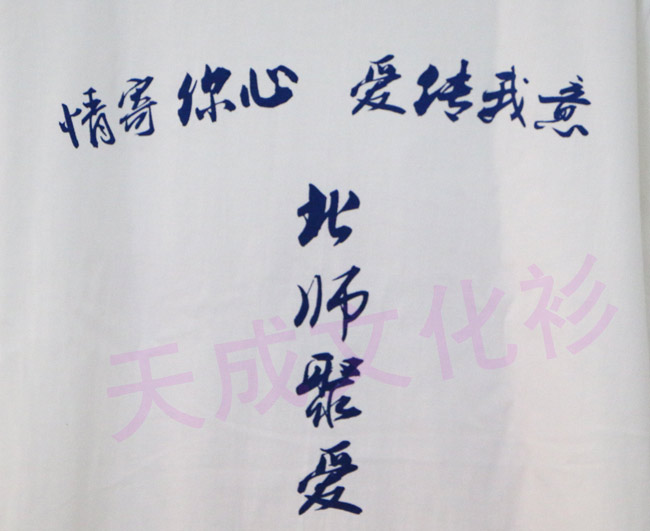 情寄你心 爱传我意
北师聚爱
天成文化衫